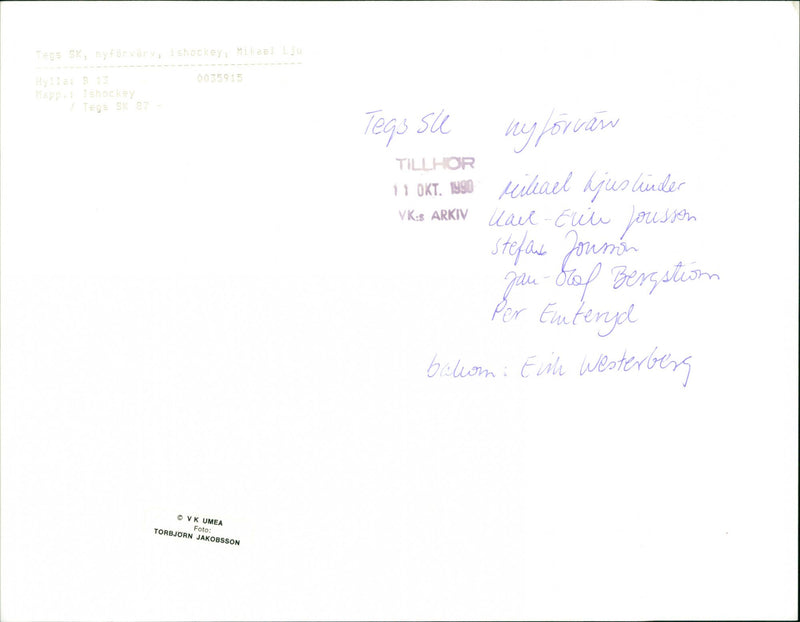 Tegs SK, nyförvärv, ishockey, Mikael Lju
Hylla: B 13 0035915
Mapp.: Ishockey
/ Tegs SK 87 -
Tegs SK nyförvärv
TILLHÖR
11 OKT. 1990
VK:s ARKIV
Mikael Ljuslinder
Karl-Erik Jonsson
Stefan Jonsson
Jan-Olof Bergström
Per Emteryd
bakom: Erik Westerberg
© VK UMEA
Foto:
TORBJÖRN JAKOBSSON